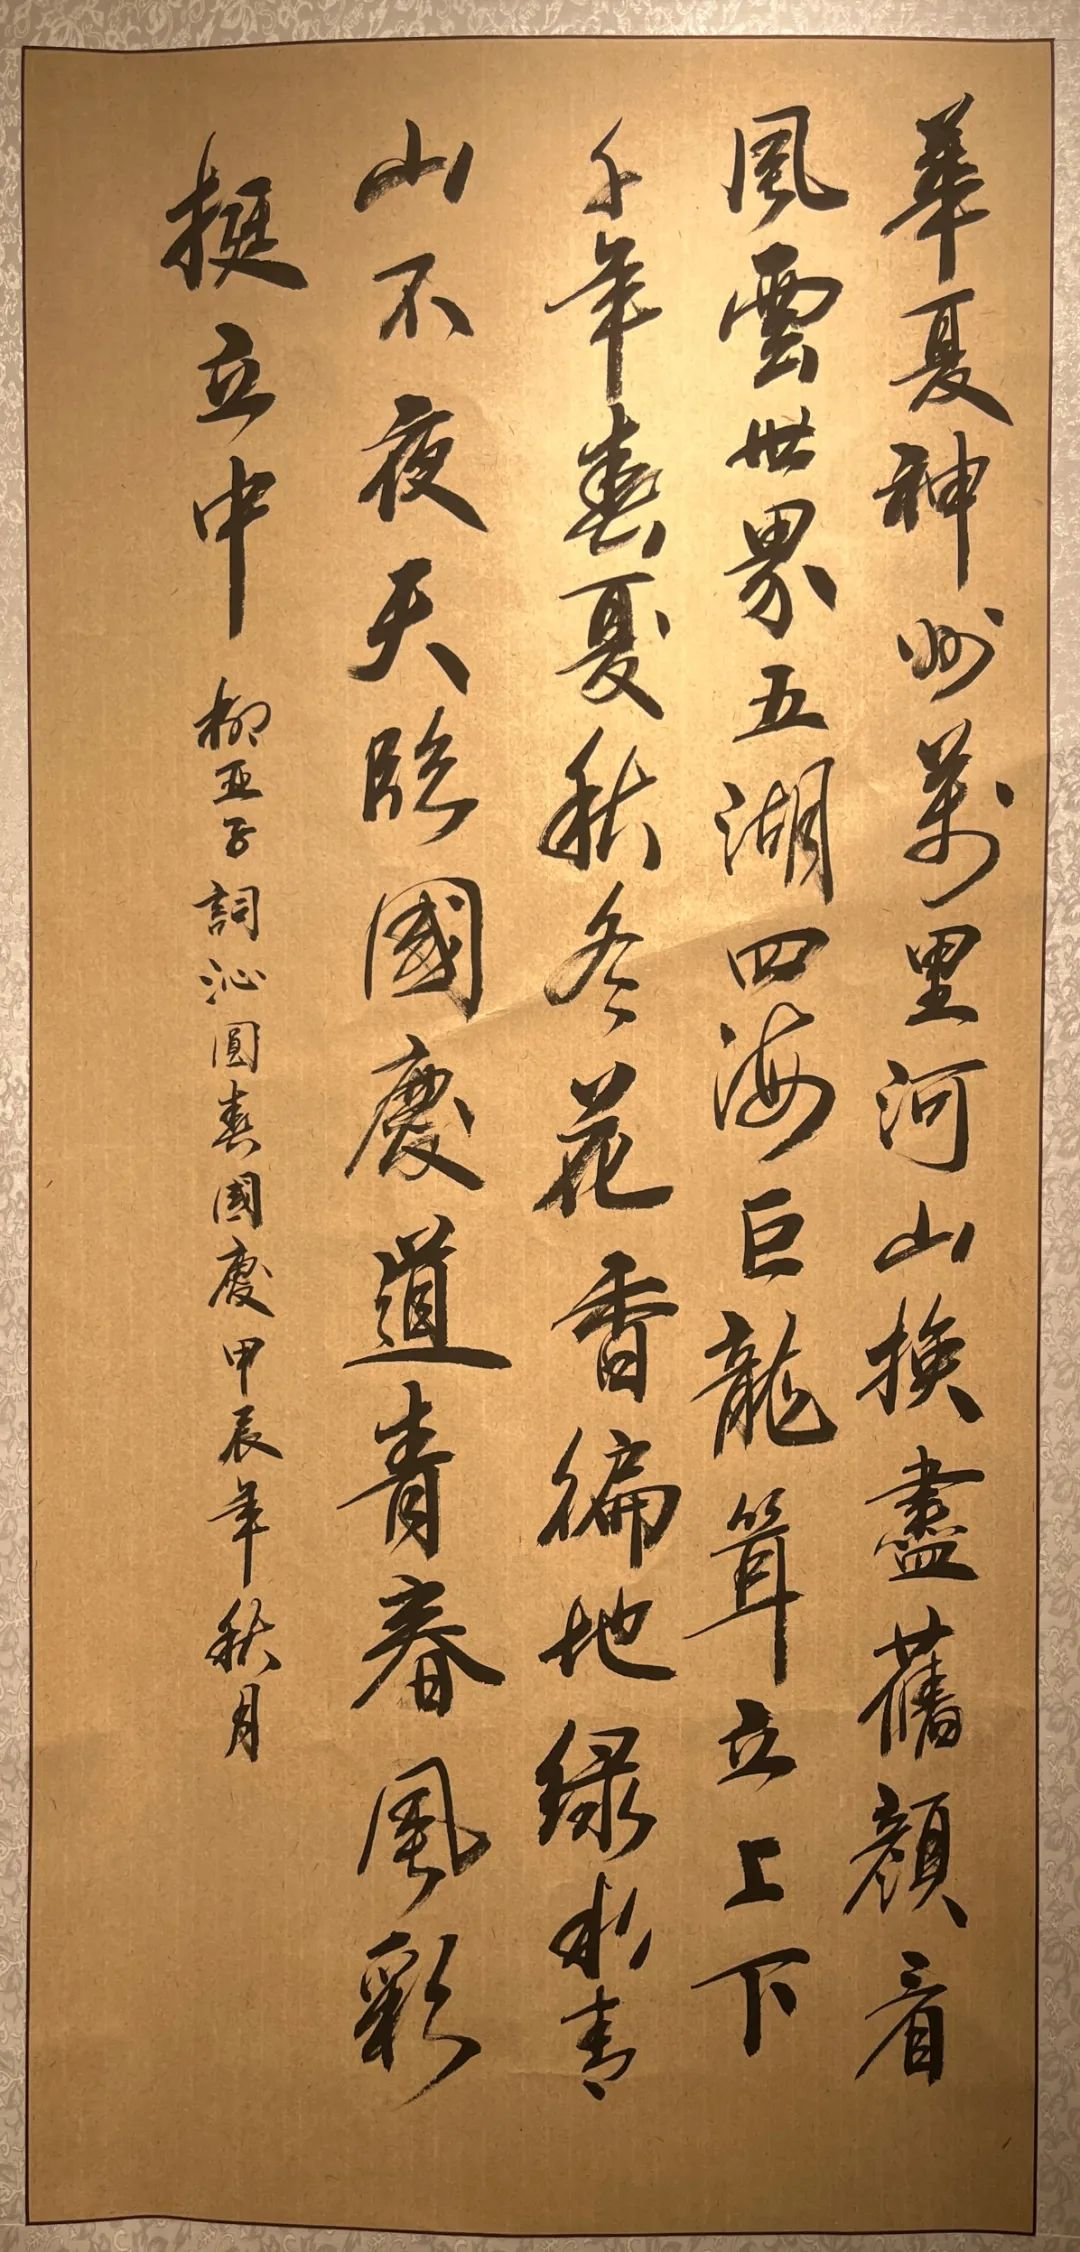 華夏神州萬里河山換盡舊顏看
風雲世界五湖四海巨龍聳立上下
千年春夏秋冬花香徧地绿水青
山不夜天臨國慶道青春風彩
挺立中
柳亚子詞沁圓春國慶甲辰年秋月